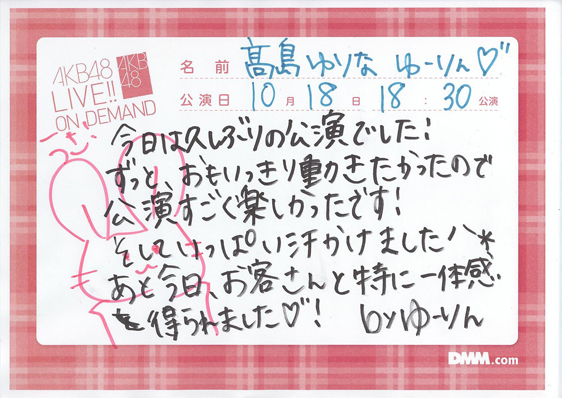 AKB48
LIVE!!
ON DEMAND
AKB
48
名前 髙島ゆりな ゆーりん♡"
公演日 10月18日 18:30公演
うさ
今日は久しぶりの公演でした!
ずっと、おもいっきり動きたかったので
公演すごく楽しかったです!
そしていっぱい汗かけました^^*
あと今日、お客さんと特に一体感
を得られました♡! byゆーりん
DMM.com